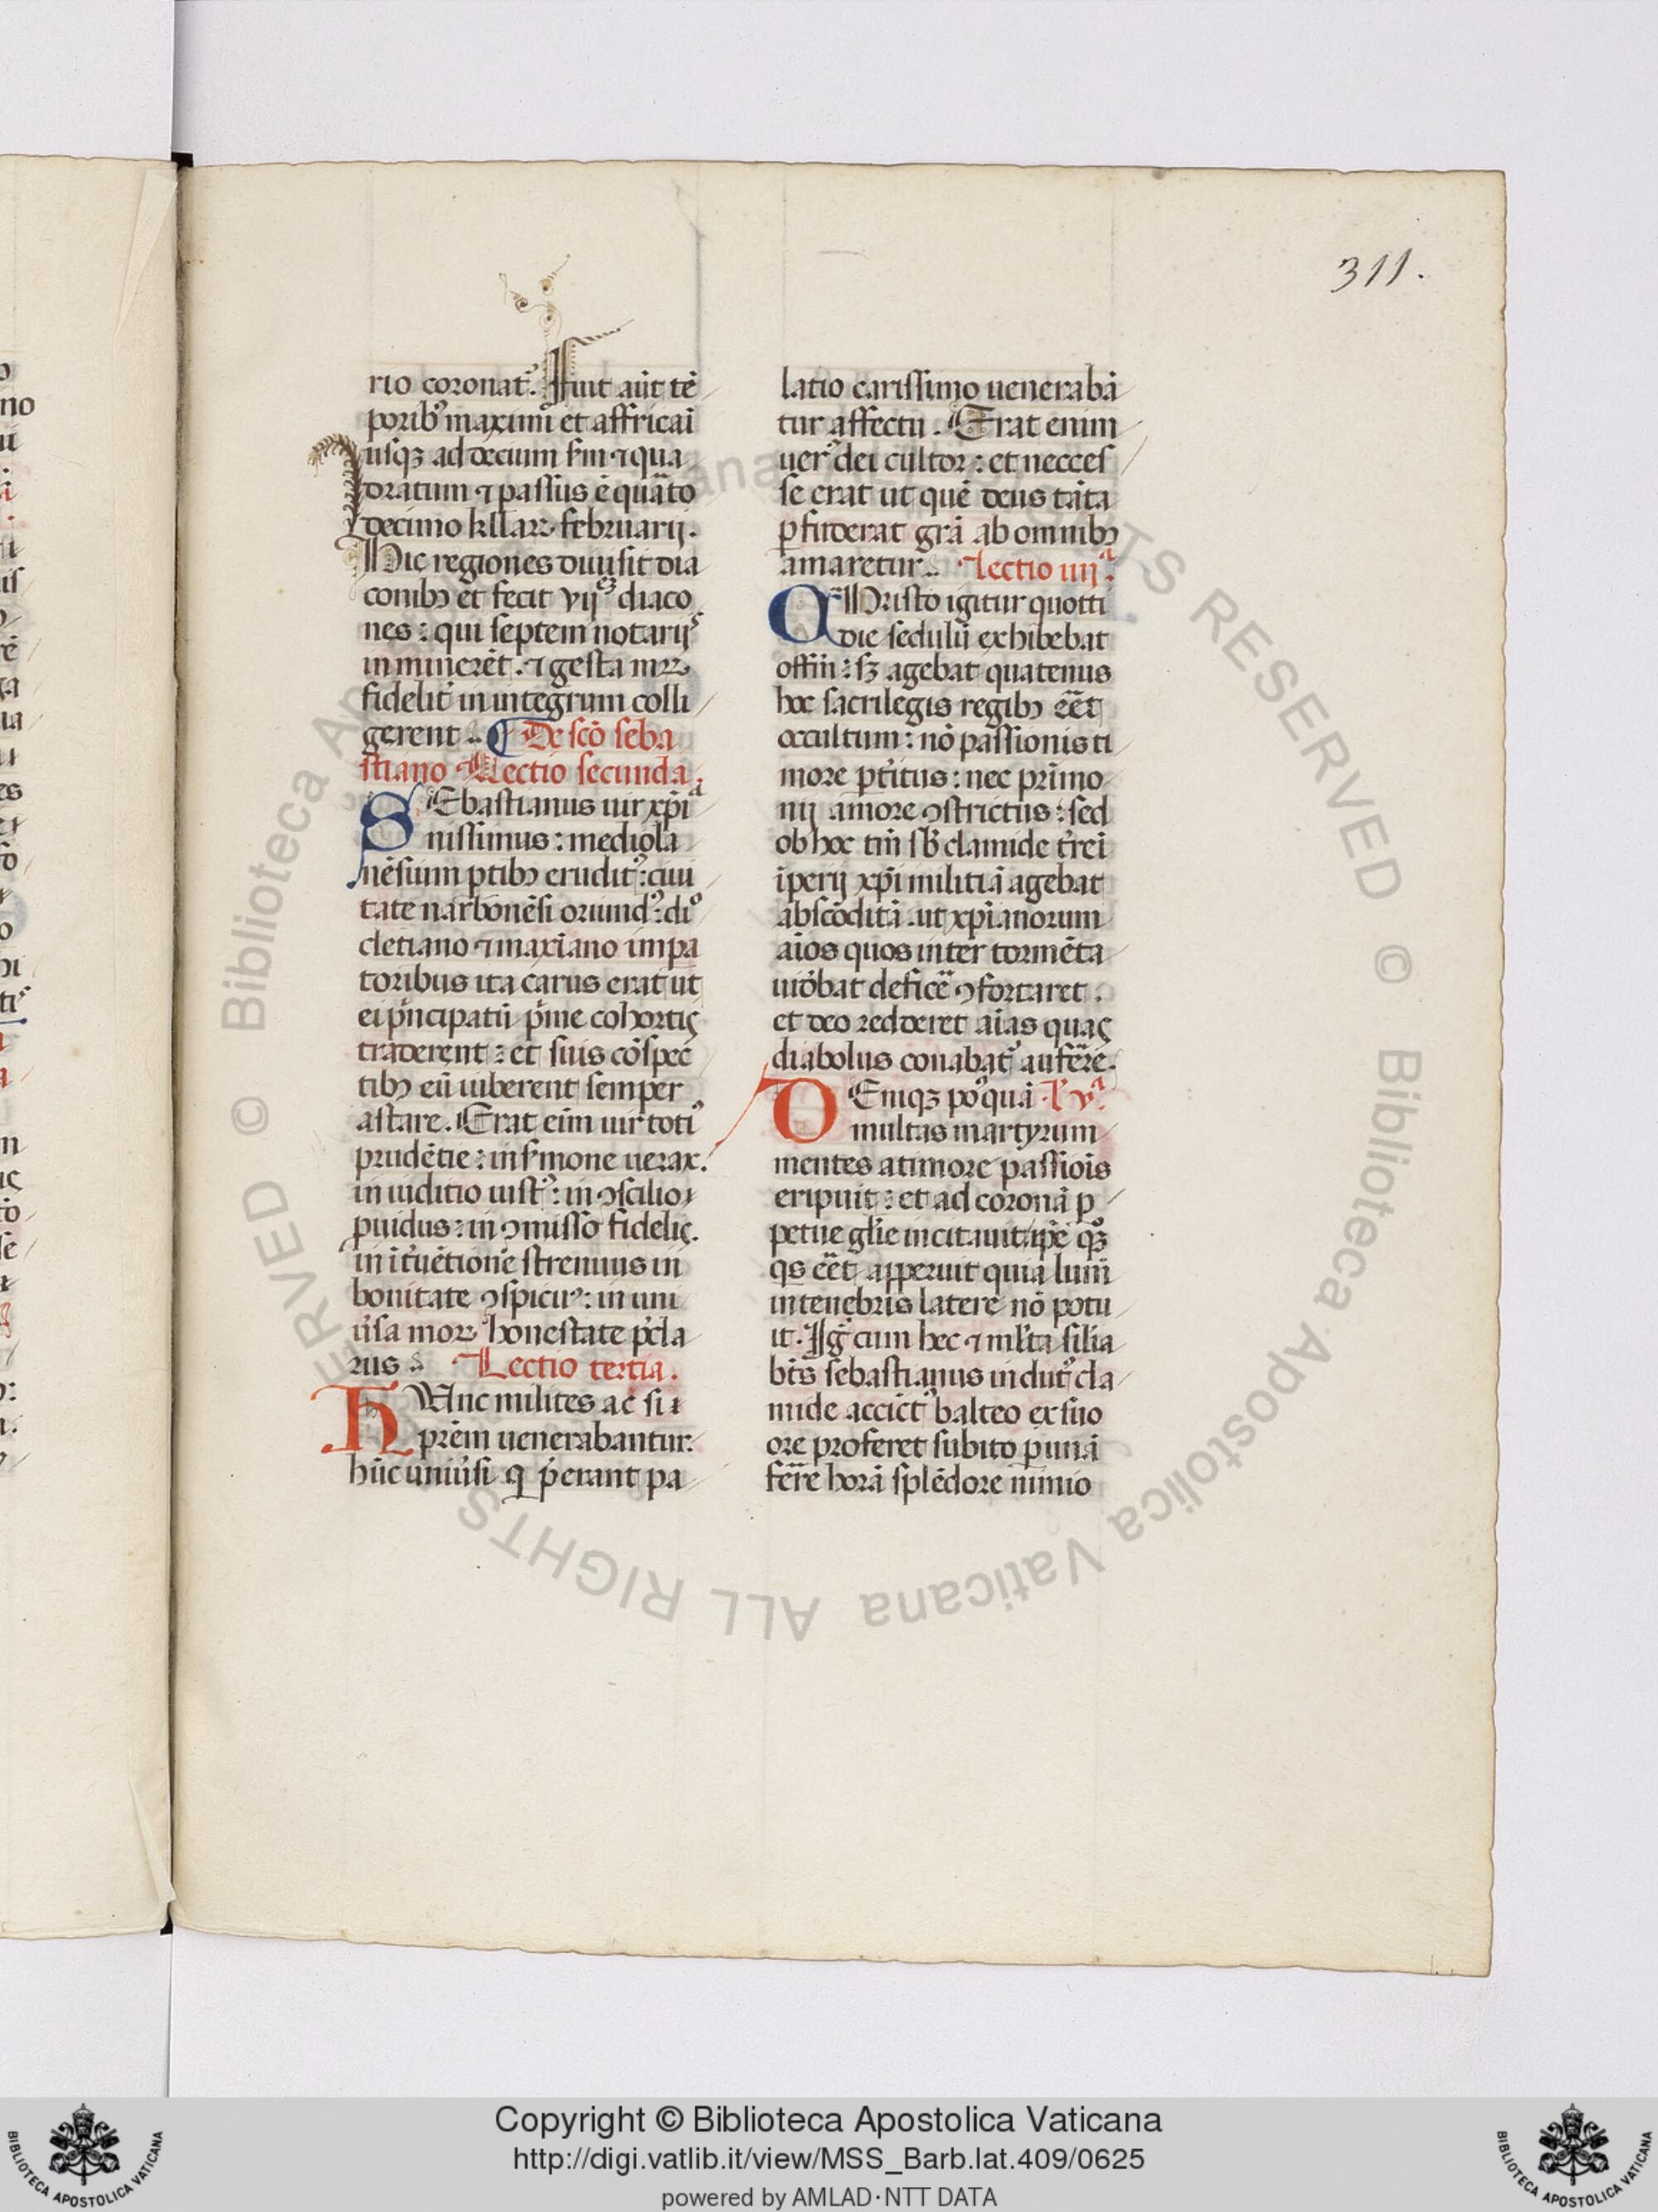 311.
rio coronat᷒. Fuit aūt tē
poribꝰ maximi et affricai
usqꝫ ad decium sm̄ ⁊ qua
doratum ⁊ passus ē quāto
decimo kllaꝝ februarij.
Hic regiones diuisit dia
conibꝫ et fecit vij diaco
nes : qui septem notarijs
in minerēt . ⁊ gesta mꝝ
fidelit᷒ in integrum colli
gerent .. ¶ De scō seba
stiano Lectio secunda
SEbastianus uir xp̄i
nissimus : mediola
nēsium ptibꝫ erudit᷒ : ciui
tate narbonēsi oriund᷒ : dio
cletiano ⁊ maxīano impa
toribus ita carus erat ut
ei pͥncipatū pͥme cohortis
traderent : et suis cōspec
tibꝫ eū iuberent semper
astare. Erat eīm uir toti᷒
prudētie : in s̄mone uerax.
in iuditio iust᷒ : in ꝯscilio
puidus : in ꝯmisso fidelis.
in īt᷒uētione strenuus in
bonitate ꝯspicu᷒ : in uni
u᷒sa moꝝ honestate p̄cla
rus .. Lectio tertia.
HUnc milites ac si
p̄rēm uenerabantur.
hūc uniu᷒si q p̄erant pa
latio carissimo uenerabā
tur affectu . Erat enim
uer᷒ dei cultor : et necces
se erat ut quē deus tāta
ꝑfuderat grā ab omnibꝫ
amaretur .. Lectio iiijᵃ.
CHristo igitur quotti
die sedulū exhibebat
offm̄ : sꝫ agebat quatenus
hoc sacrilegis regibꝫ eēt
occultum : nō passionis ti
more pt᷒itus : nec prīmo
nij amore ꝯstrictus : sed
ob hoc tm̄ sb̄ clamide t᷒reī
īperij xp̄i militiā agebat
abscōditā . ut xp̄ianorum
aīos quos inter tormēta
uiōbat deficē ꝯfortaret .
et deo redderet aīas quas
diabolus conabat᷒ auferre.
DEniqꝫ poᷤquā L᷒ vᵃ.
multas martyrum
mentes a timore passiōis
eripuit : et ad coronā p
petue gl̄ie incitauit : ip̄e qͦꝫ
qs eēt apperuit quia lum̄
in tenebris latere nō potu
it. Ig᷒ cum hec ⁊ ml̄ta silia
bt̄s sebastianus indut᷒ cla
mide accīct᷒ balteo ex suo
ore proferet subito p unā
ferē horā splēdore nimio
© Biblioteca Apostolica Vaticana ALL RIGHTS RESERVED
Copyright © Biblioteca Apostolica Vaticana
http://digi.vatlib.it/view/MSS_Barb.lat.409/0625
powered by AMLAD·NTT DATA
BIBLIOTECA APOSTOLICA VATICANA
BIBLIOTECA APOSTOLICA VATICANA